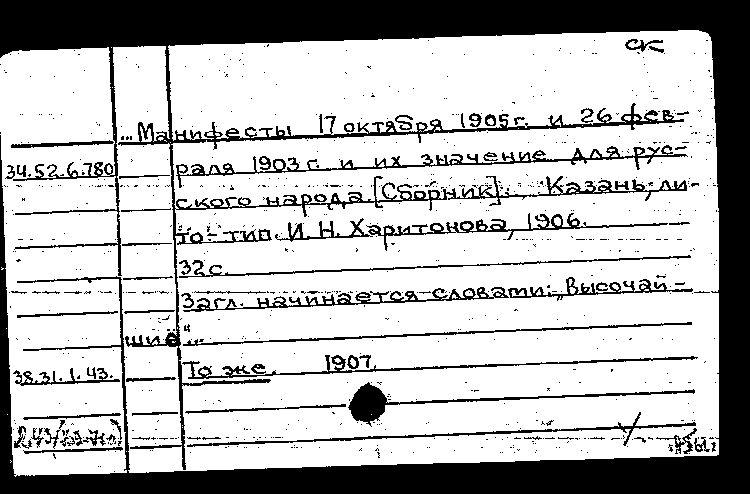 ск
...Манифесты 17 октября 1905 г. и 26 фев-
34.52.6.780 раля 1903 г. и их значение для рус-
ского народа. [Сборник]. Казань, ли-
то-тип. И. Н. Харитонова, 1906.
32 с.
Загл. начинается словами: „Высочай-
шие“...
38.31.1.43. То же. 1907.